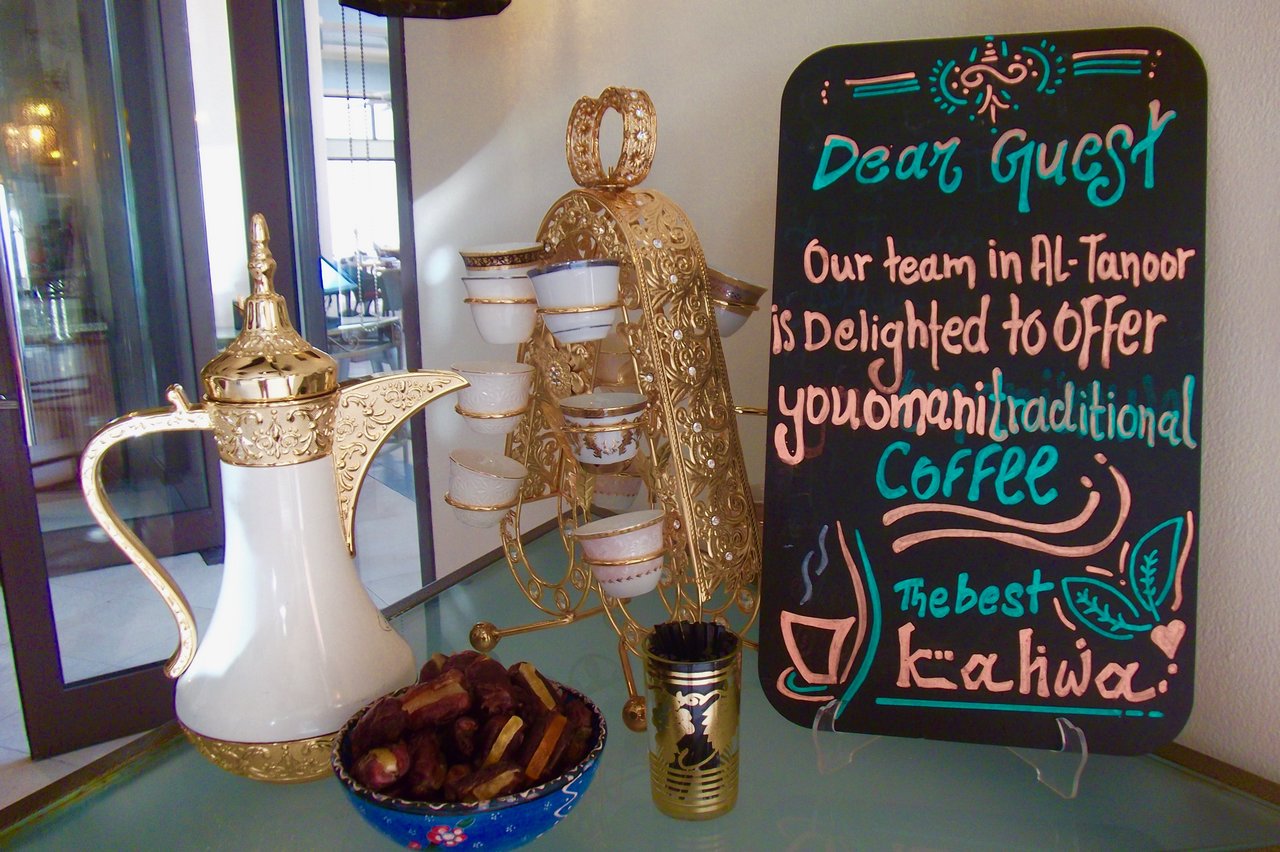 Dear Guest
Our team in Al-Tanoor
is Delighted to offer
you omani traditional
Coffee
The best
kahwa